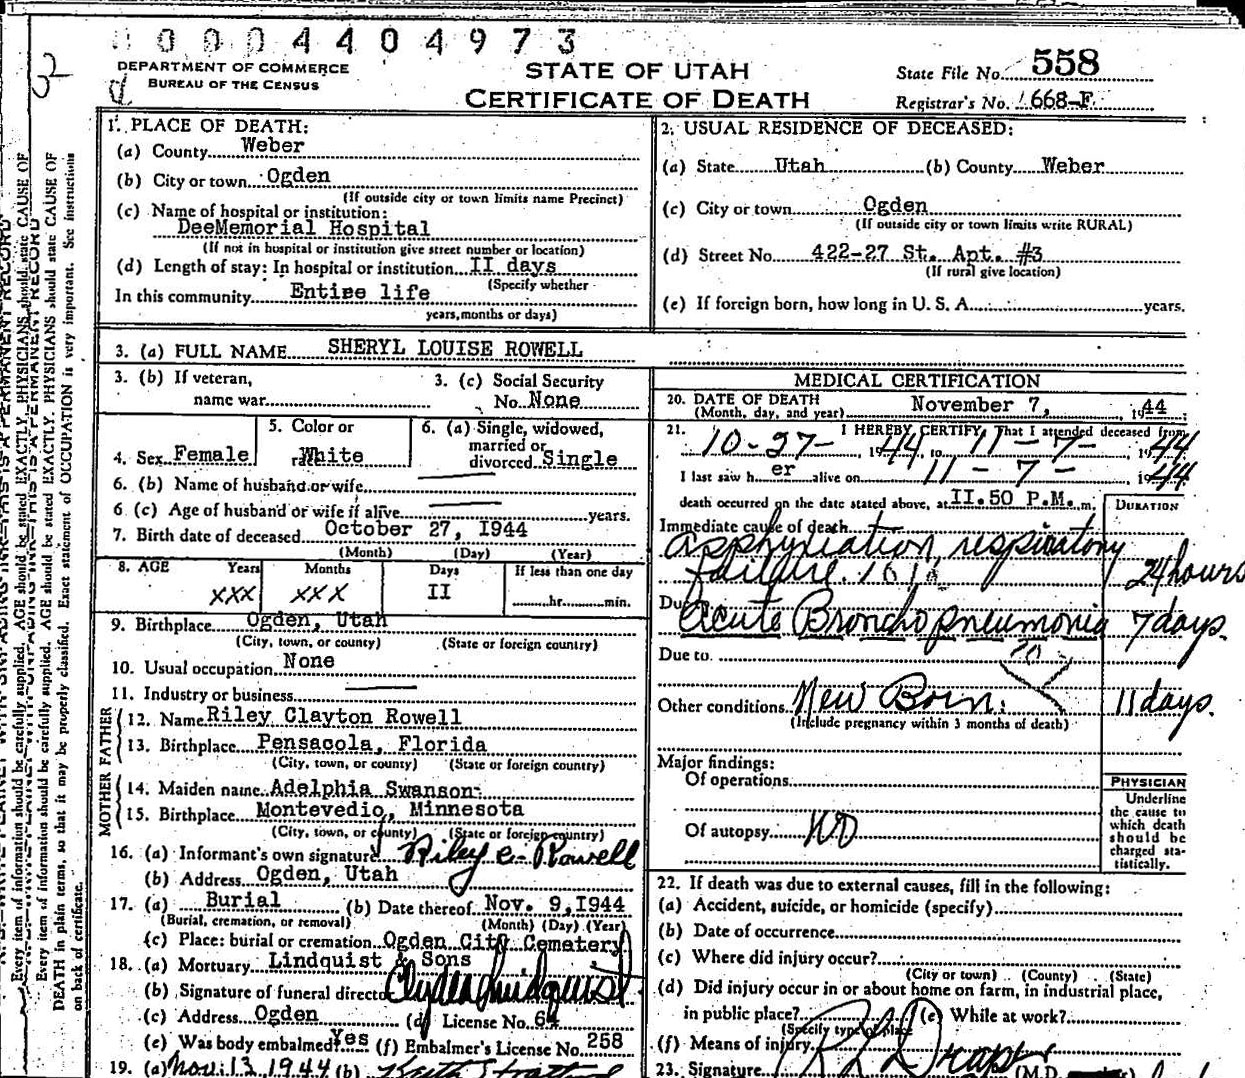 0 0 0 0 4 4 0 4 9 7 3
DEPARTMENT OF COMMERCE
BUREAU OF THE CENSUS
STATE OF UTAH
CERTIFICATE OF DEATH
State File No. 558
Registrar's No. 668-F
1. PLACE OF DEATH:
(a) County Weber
(b) City or town Ogden
(If outside city or town limits name Precinct)
(c) Name of hospital or institution:
DeeMemorial Hospital
(If not in hospital or institution give street number or location)
(d) Length of stay: In hospital or institution II days
(Specify whether
In this community Entire life
years, months or days)
2. USUAL RESIDENCE OF DECEASED:
(a) State Utah (b) County Weber
(c) City or town Ogden
(If outside city or town limits write RURAL)
(d) Street No. 422-27 St. Apt. #3
(If rural give location)
(e) If foreign born, how long in U. S. A. years.
3. (a) FULL NAME SHERYL LOUISE ROWELL
3. (b) If veteran,
name war
3. (c) Social Security
No. None
4. Sex Female
5. Color or
race White
6. (a) Single, widowed,
married or
divorced Single
6. (b) Name of husband or wife
6 (c) Age of husband or wife if alive years.
7. Birth date of deceased October 27, 1944
(Month) (Day) (Year)
8. AGE Years Months Days If less than one day
XXX XXX II hr. min.
9. Birthplace Ogden, Utah
(City, town, or county) (State or foreign country)
10. Usual occupation None
11. Industry or business
FATHER
12. Name Riley Clayton Rowell
13. Birthplace Pensacola, Florida
(City, town, or county) (State or foreign country)
MOTHER
14. Maiden name Adelphia Swanson
15. Birthplace Montevedio, Minnesota
(City, town, or county) (State or foreign country)
16. (a) Informant's own signature Riley C. Rowell
(b) Address Ogden, Utah
17. (a) Burial (b) Date thereof Nov. 9, 1944
(Burial, cremation, or removal) (Month) (Day) (Year)
(c) Place: burial or cremation Ogden City Cemetery
18. (a) Mortuary Lindquist & Sons
(b) Signature of funeral director Clyde Lindquist
(c) Address Ogden (d) License No. 64
(e) Was body embalmed? Yes (f) Embalmer's License No. 258
19. (a) Nov. 13 1944 (b)
MEDICAL CERTIFICATION
20. DATE OF DEATH
(Month, day, and year) November 7, 1944
21. I HEREBY CERTIFY, That I attended deceased from
10-27-, 1944, to 11-7-, 1944
I last saw her alive on 11-7-1944
death occurred on the date stated above, at II.50 P.M. m.
DURATION
Immediate cause of death
Asphyxiation respiratory
failure. 24 hours
Due to Acute Bronchopneumonia 7 days.
Due to
Other conditions New Born. 11 days.
(Include pregnancy within 3 months of death)
Major findings:
Of operations
Of autopsy NO
PHYSICIAN
Underline
the cause to
which death
should be
charged sta-
tistically.
22. If death was due to external causes, fill in the following:
(a) Accident, suicide, or homicide (specify)
(b) Date of occurrence
(c) Where did injury occur?
(City or town) (County) (State)
(d) Did injury occur in or about home on farm, in industrial place,
in public place? (e) While at work?
(Specify type of place
(f) Means of injury
23. Signature (M.D.
Every item of information should be carefully supplied. AGE should be stated EXACTLY. PHYSICIANS should state CAUSE OF
DEATH in plain terms, so that it may be properly classified. Exact statement of OCCUPATION is very important. See instructions
on back of certificate.